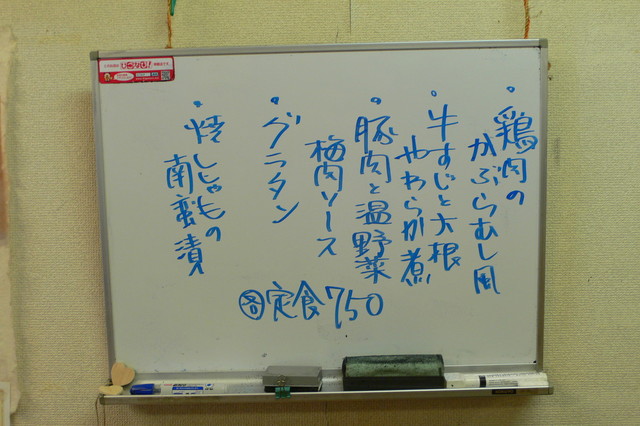 ・鶏肉の
かぶらむし風
・牛すじと大根
やわらか煮
・豚肉と温野菜
梅肉ソース
・グラタン
・焼ししゃもの
南蛮漬
各定食750